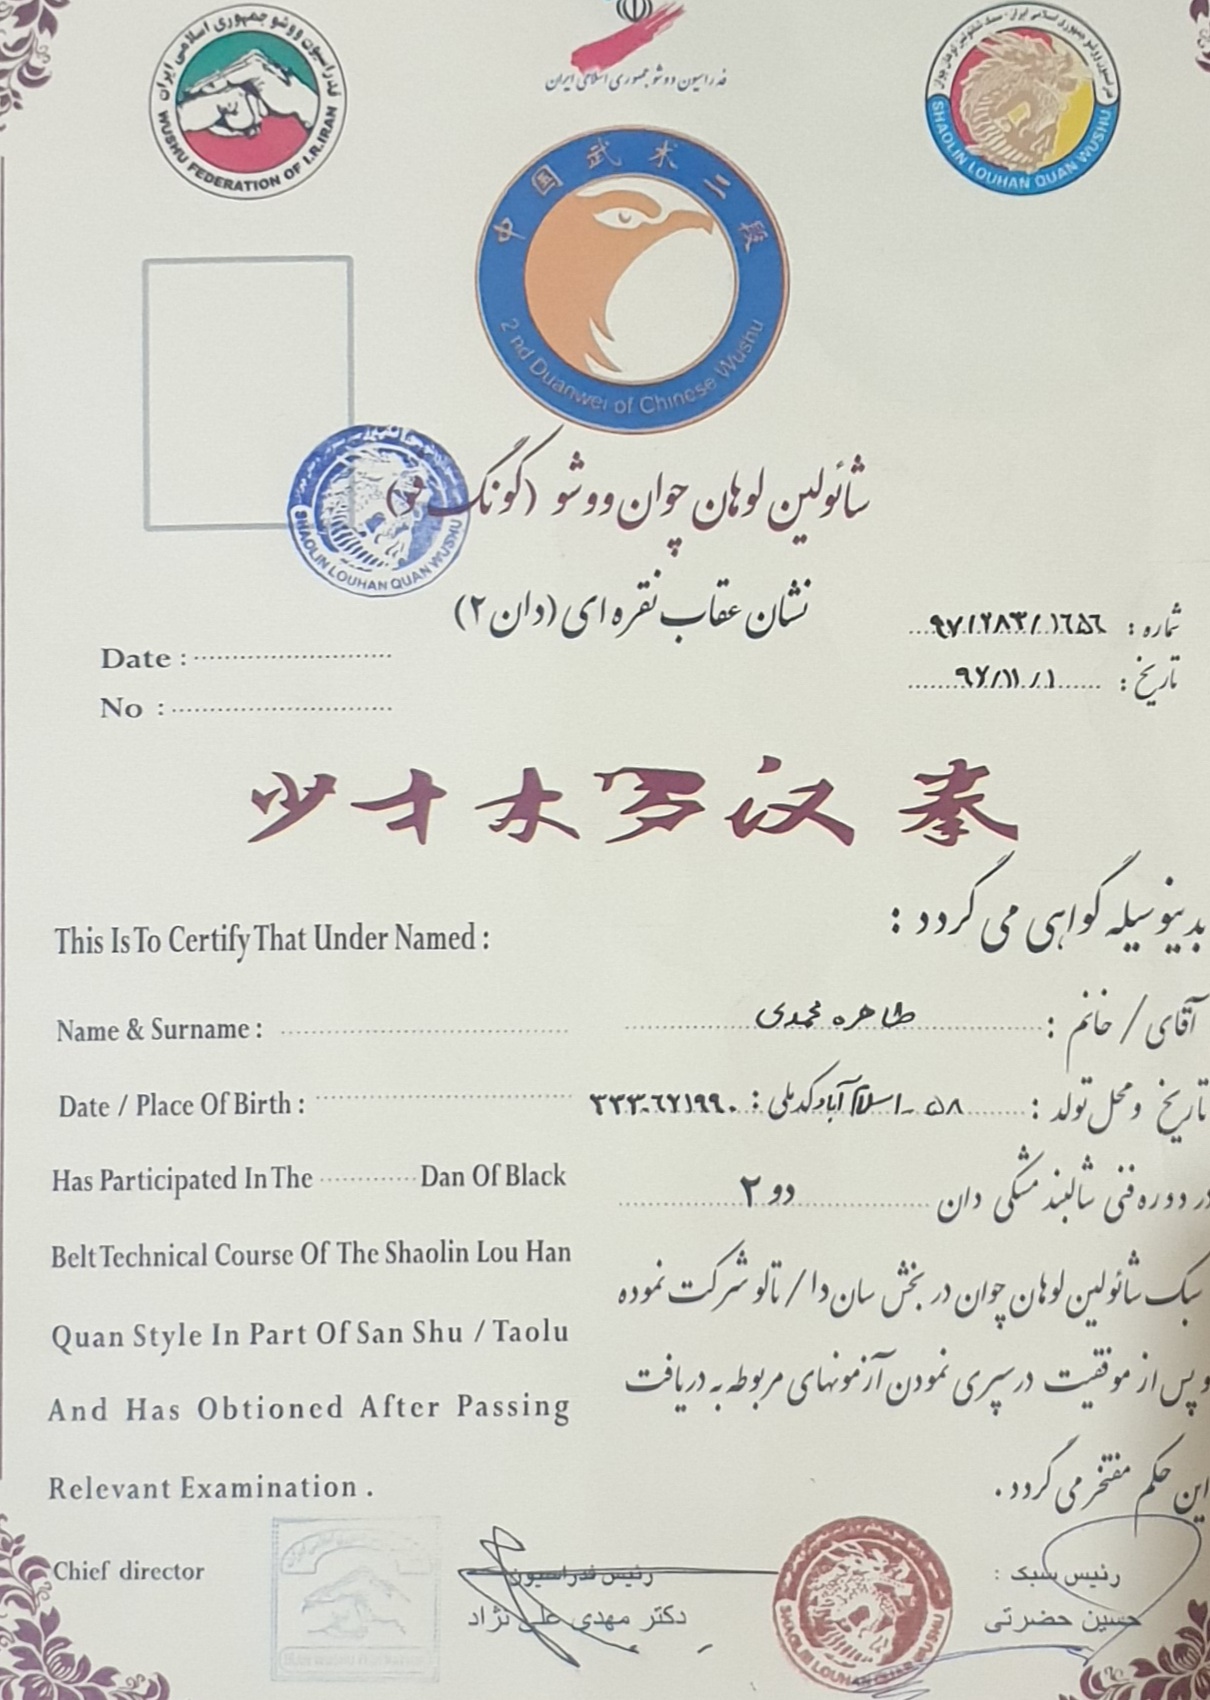 فدراسیون ووشو جمهوری اسلامی ایران
WUSHU FEDERATION OF I.R.IRAN
فدراسیون ووشو جمهوری اسلامی ایران
SHAOLIN LOUHAN QUAN WUSHU
中国武术二段
2 nd Duanwei of Chinese Wushu
شائولین لوهان چوان ووشو (گونگ فو)
SHAOLIN LOUHAN QUAN WUSHU
نشان عقاب نقره ای (دان ۲)
شماره : ۹۷/۲۸۳/۱۶۵۶
Date :
تاریخ : ۹۷/۱۱/۱
No :
少才木罗汉拳
This Is To Certify That Under Named :
بدینوسیله گواهی می گردد :
Name & Surname :
آقای / خانم : طاهره محمدی
Date / Place Of Birth :
تاریخ و محل تولد : ۵۸ - اسلام آباد کدملی : ۳۳۳۰۶۷۱۹۹۰
Has Participated In The Dan Of Black
در دوره فنی شالبند مشکی دان دو ۲
Belt Technical Course Of The Shaolin Lou Han
سبک شائولین لوهان چوان در بخش سان دا / تالو شرکت نموده
Quan Style In Part Of San Shu / Taolu
و پس از موفقیت در سپری نمودن آزمونهای مربوطه به دریافت
And Has Obtioned After Passing
این حکم مفتخر می گردد .
Relevant Examination .
Chief director
رئیس فدراسیون
دکتر مهدی علی نژاد
رئیس سبک :
حسین حضرتی
SHAOLIN LOUHAN QUAN WUSHU